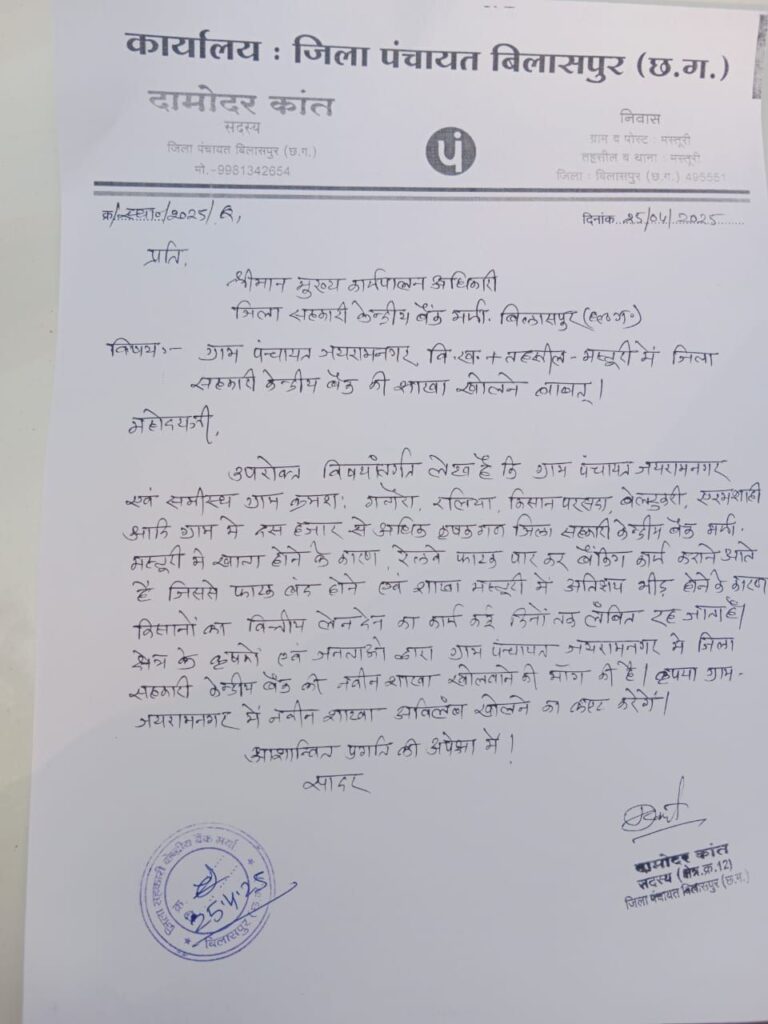 कार्यालय : जिला पंचायत बिलासपुर (छ.ग.)
दामोदर कांत
सदस्य
जिला पंचायत बिलासपुर (छ.ग.)
मो.-9981342654
पं
निवास
ग्राम व पोस्ट : मस्तूरी
तहसील व थाना : मस्तूरी
जिला : बिलासपुर (छ.ग.) 495551
दिनांक 25/04/2025
प्रति,
श्रीमान मुख्य कार्यपालन अधिकारी
जिला सहकारी केन्द्रीय बैंक मर्या. बिलासपुर (छ०ग०)
विषय:- ग्राम पंचायत जयरामनगर, वि.ख. + तहसील - मस्तूरी में जिला
सहकारी केन्द्रीय बैंक की शाखा खोलने बाबत् ।
महोदयजी,
उपरोक्त विषयांतर्गत लेख है कि ग्राम पंचायत जयरामनगर
एवं समीस्थ ग्राम क्रमश: गतौरा, रलिया, किसान परसदा, बेलटुकरी, एरमशाही
आदि ग्राम में दस हजार से अधिक कृषकगण जिला सहकारी केन्द्रीय बैंक मर्या.
मस्तूरी में खाता होने के कारण, रेलवे फाटक पार कर बैंकिंग कार्य कराने आते
है जिससे फाटक बंद होने एवं शाखा मस्तूरी में अतिशय भीड़ होने के कारण
किसानों का वित्तीय लेन देन का कार्य कई दिनों तक लंबित रह जाता है।
क्षेत्र के कृषकों एवं जनताओ द्वारा ग्राम पंचायत जयरामनगर में जिला
सहकारी केन्द्रीय बैंक की नवीन शाखा खोलवाने की माँग की है। कृपया ग्राम-
जयरामनगर में नवीन शाखा अविलंब खोलने का कष्ट करेगें।
आशान्वित प्रगति की अपेक्षा में।
सादर
दामोदर कांत
सदस्य (क्षेत्र.क्र.12)
जिला पंचायत बिलासपुर (छ.ग.)
जिला सहकारी केन्द्रीय बैंक मर्या
25.4.25
बिलासपुर (छ.ग.)